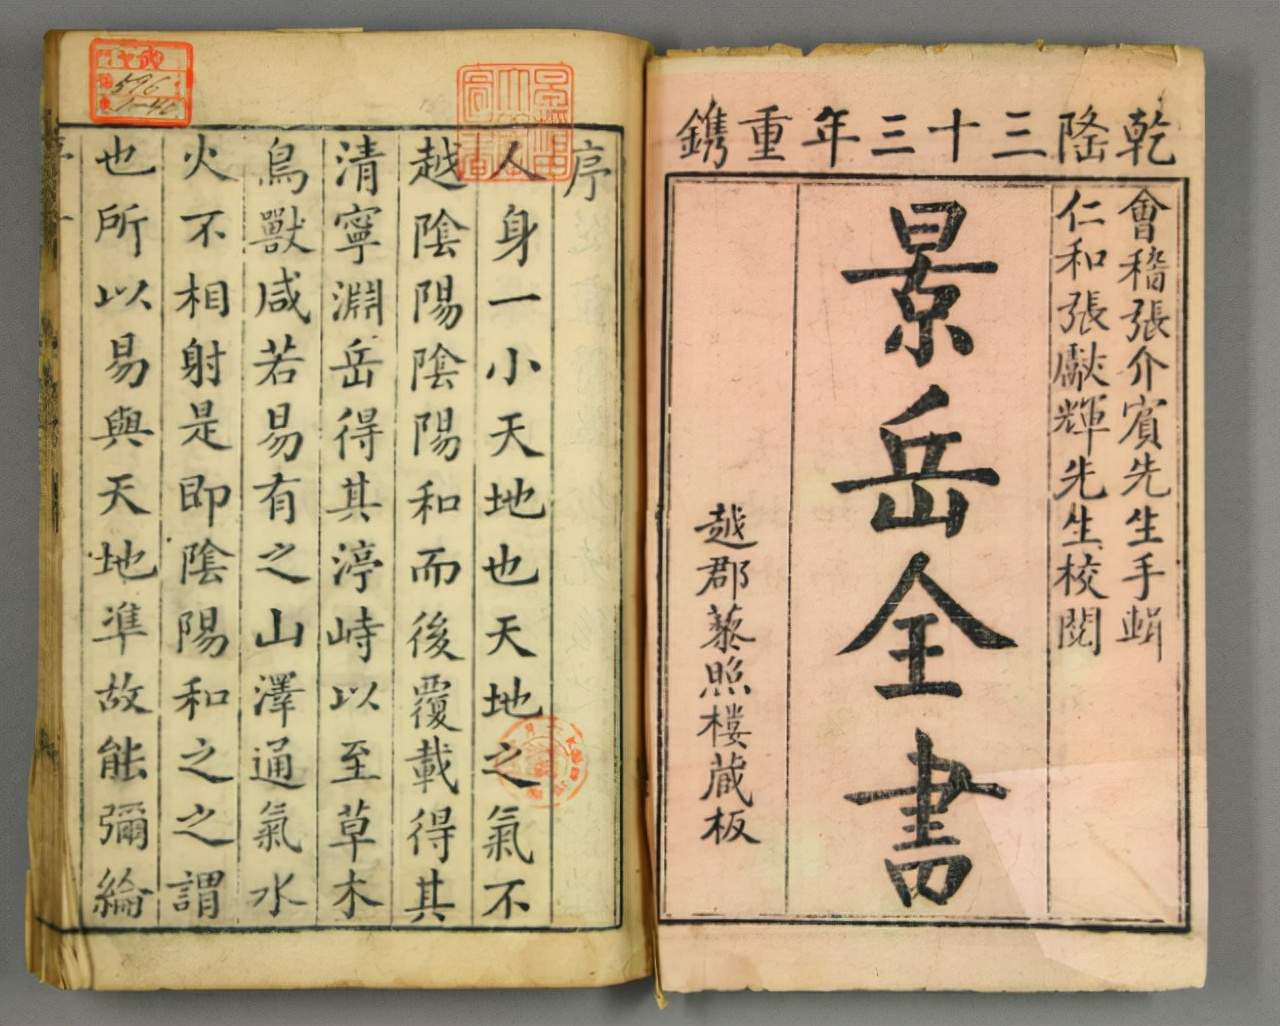 乾隆三十三年重鐫
會稽張介賓先生手輯
仁和張獻輝先生校閱
景岳全書
越郡藜照樓蔵板
序
人身一小天地也天地之氣不
越陰陽陰陽和而後覆載得其
清寧淵岳得其渟峙以至草木
鳥獸咸若易有之山澤通氣水
火不相射是即陰陽和之之謂
也所以易與天地準故能彌綸
596
1-40